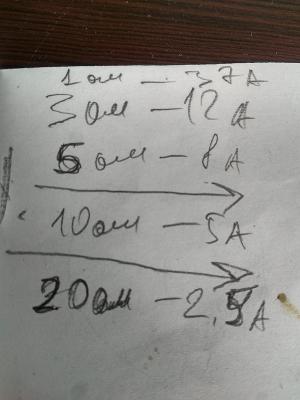 1 ом — 37 А
3 ом — 12 А
6 ом — 8 А
10 ом — 5 А
20 ом — 2,5 А